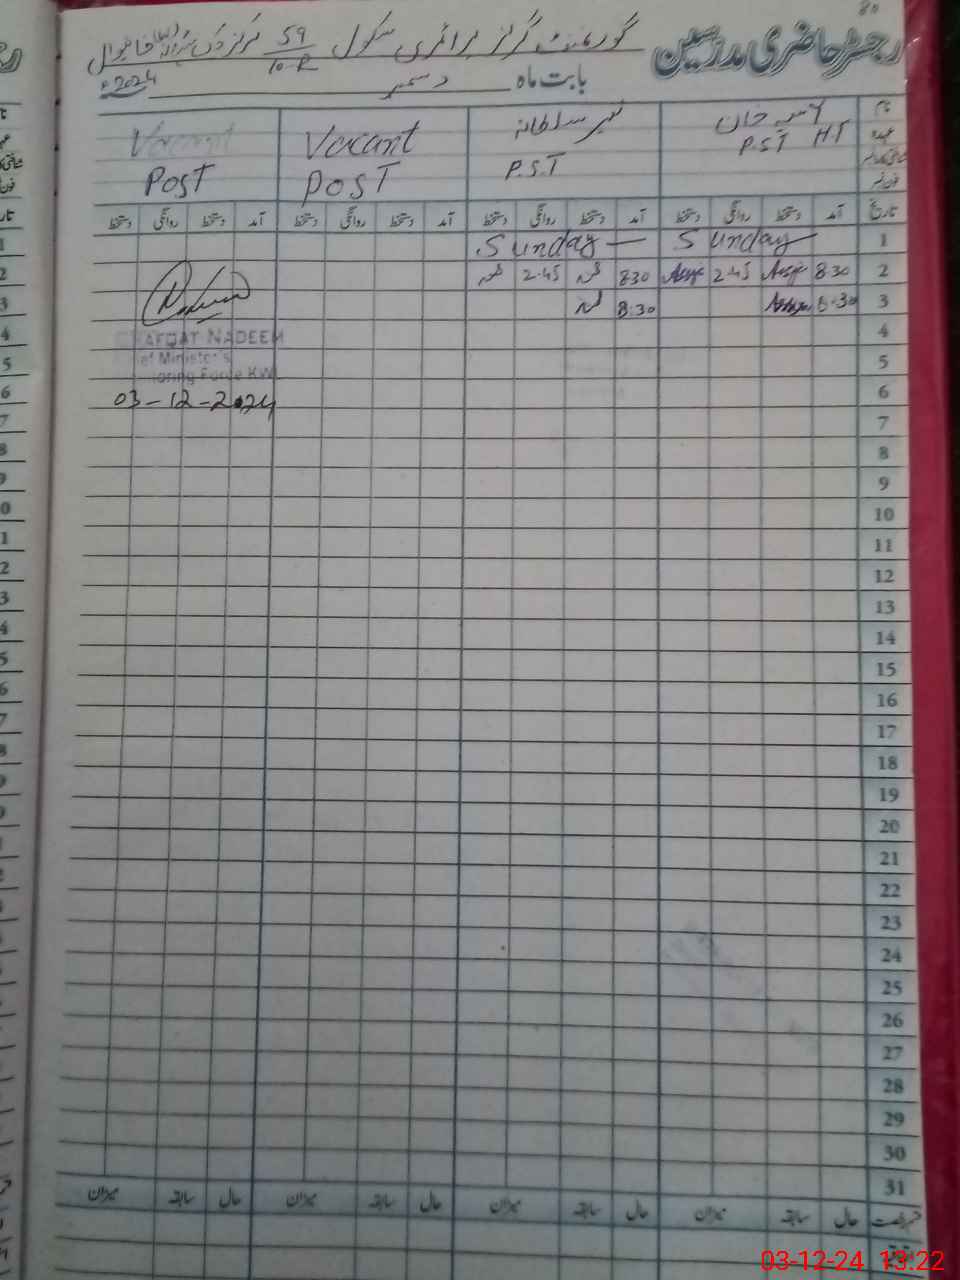 80
رجسٹر حاضری مدرسین گورنمنٹ گرلز پرائمری سکول 59/10-R مرکز خانیوال
بابت ماہ دسمبر 2024ء
نام آسیہ خان سلطانہ Vacant Vacant
عہدہ P.ST HT P.S.T POST POST
شناختی کارڈ نمبر
فون نمبر
تاریخ آمد دستخط روانگی دستخط آمد دستخط روانگی دستخط آمد دستخط روانگی دستخط آمد دستخط روانگی دستخط
1 Sunday Sunday
2 8:30 2:45 8:30 2:45
3 8:30 8:30
4 SHAFQAT NADEEM
5 Chief Minister's
Monitoring Force KWL
6 03-12-2024
7
8
9
10
11
12
13
14
15
16
17
18
19
20
21
22
23
24
25
26
27
28
29
30
31
حال سابقہ میزان حال سابقہ میزان حال سابقہ میزان حال سابقہ میزان
03-12-24 13:22